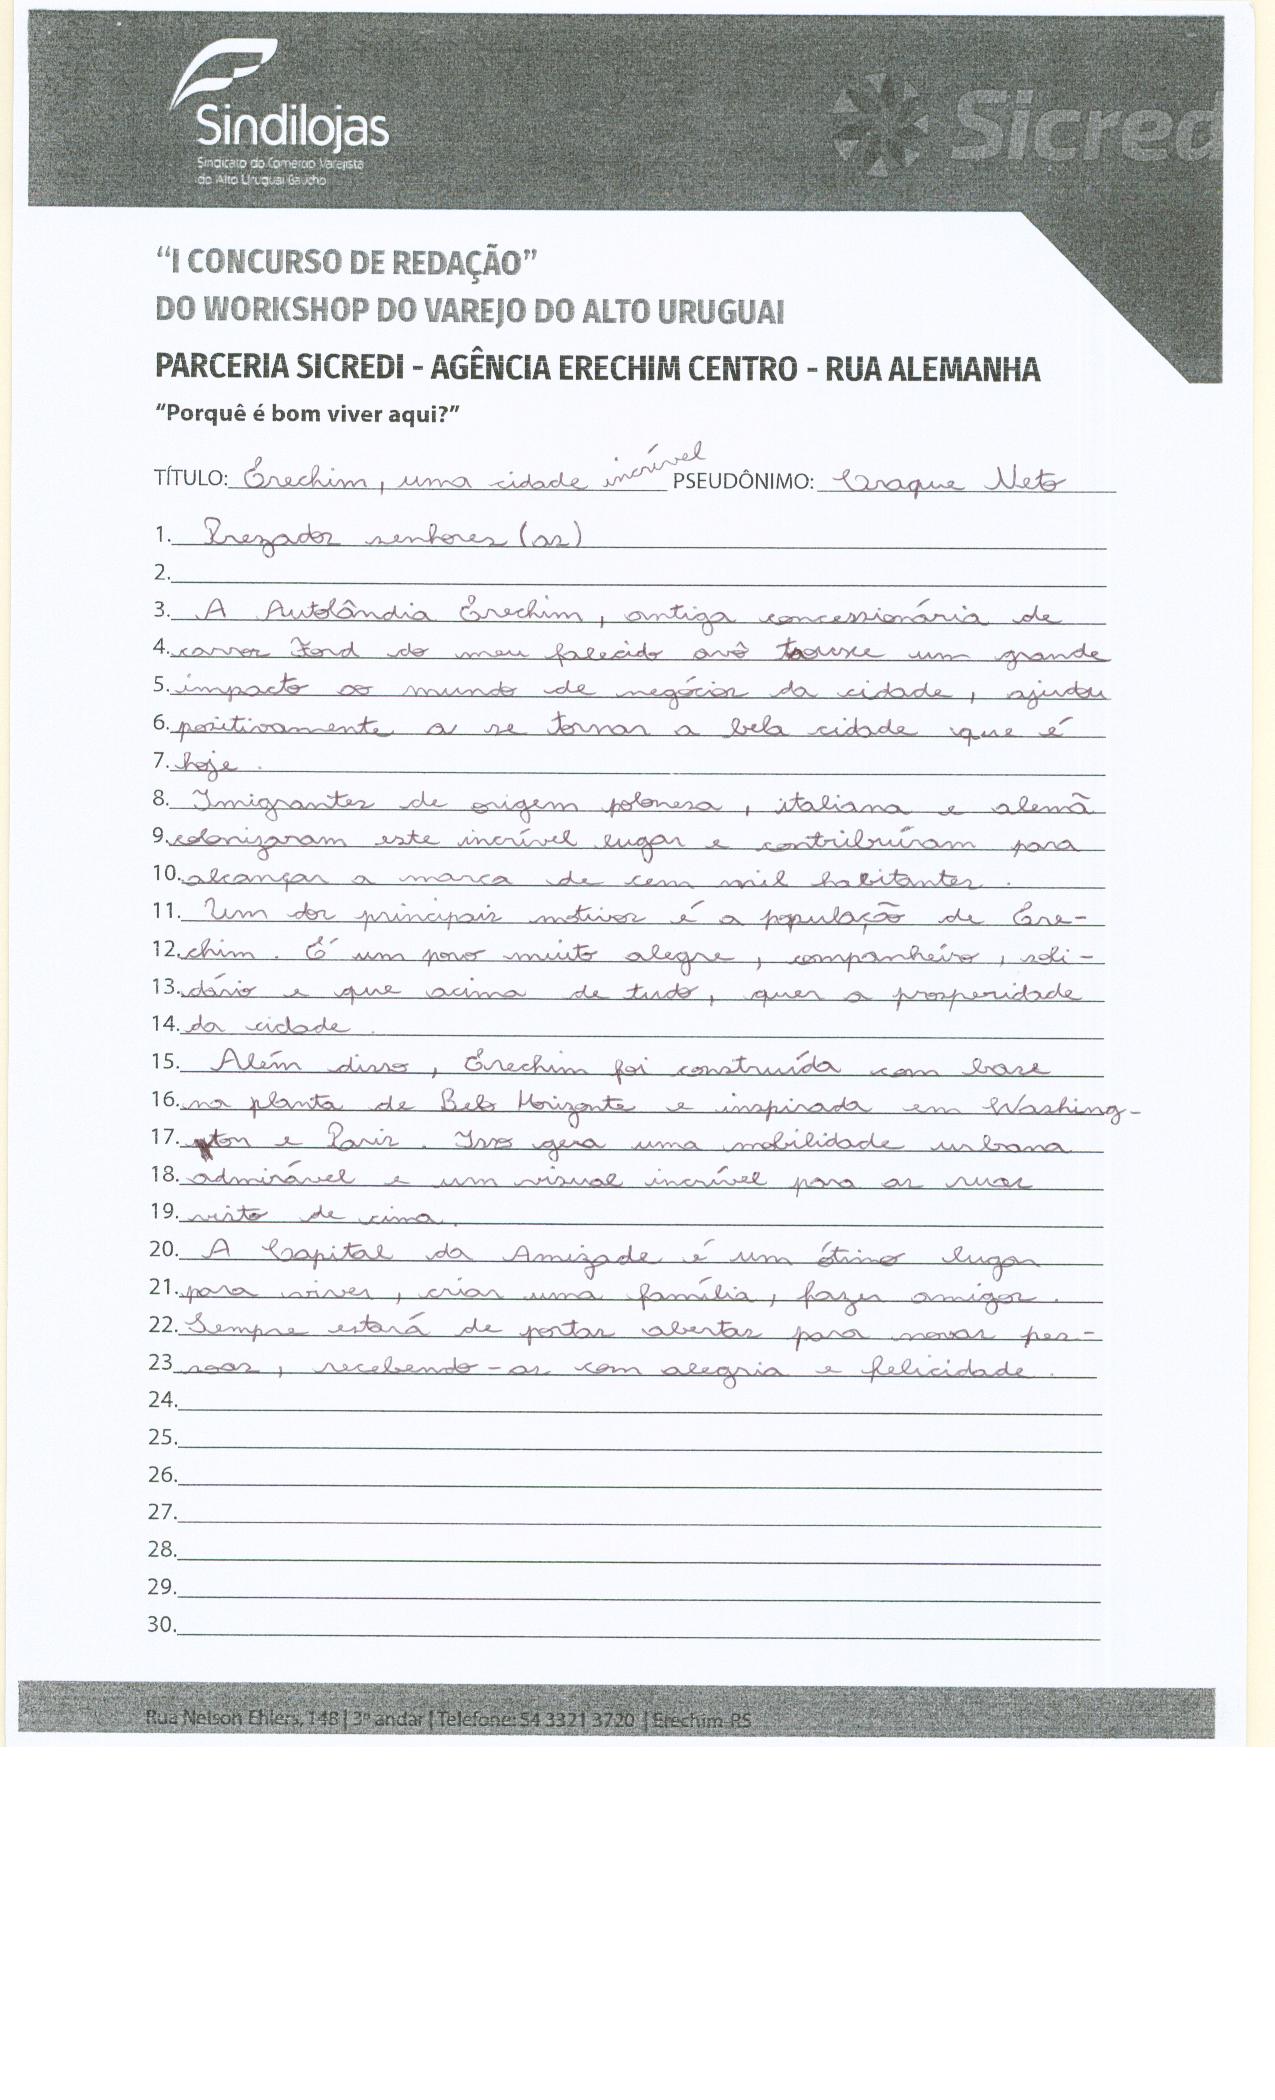 Sindilojas
Sindicato do Comércio Varejista
do Alto Uruguai Gaúcho
Sicred
“I CONCURSO DE REDAÇÃO”
DO WORKSHOP DO VAREJO DO ALTO URUGUAI
PARCERIA SICREDI - AGÊNCIA ERECHIM CENTRO - RUA ALEMANHA
“Porquê é bom viver aqui?”
TÍTULO: Erechim, uma cidade incrível PSEUDÔNIMO: Craque Neto
1. Prezados senhores (as)
2.
3. A Autolândia Erechim, antiga concessionária de
4. carros Ford do meu falecido avô trouxe um grande
5. impacto ao mundo de negócios da cidade, ajudou
6. positivamente a se tornar a bela cidade que é
7. hoje.
8. Imigrantes de origem polonesa, italiana e alemã
9. colonizaram este incrível lugar e contribuíram para
10. alcançar a marca de cem mil habitantes.
11. Um dos principais motivos é a população de Ere-
12. chim. É um povo muito alegre, companheiro, soli-
13. dário e que acima de tudo, quer a prosperidade
14. da cidade.
15. Além disso, Erechim foi construída com base
16. na planta de Belo Horizonte e inspirada em Washing-
17. ton e Paris. Isso gera uma mobilidade urbana
18. admirável e um visual incrível para as ruas
19. visto de cima.
20. A Capital da Amizade é um ótimo lugar
21. para viver, criar uma família, fazer amigos.
22. Sempre estará de portas abertas para novas pes-
23 soas, recebendo-as com alegria e felicidade.
24.
25.
26.
27.
28.
29.
30.
Rua Nelson Ehlers, 148 | 3º andar | Telefone: 54 3321 3720 | Erechim-RS